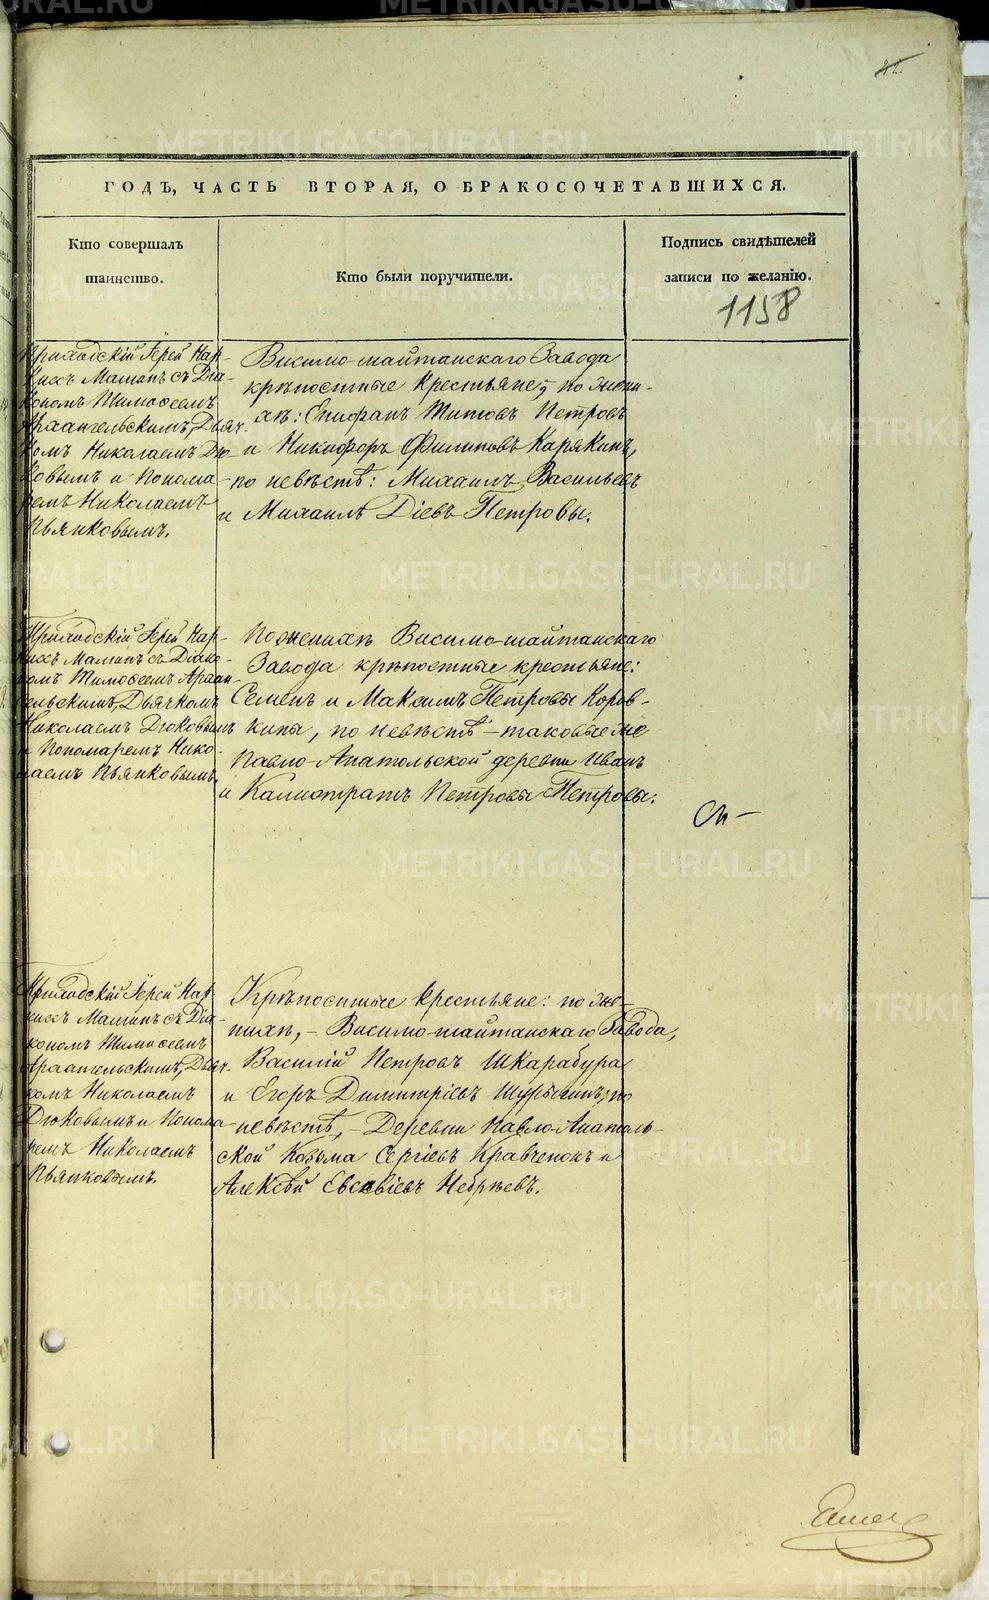 42.
ГОДЪ, ЧАСТЬ ВТОРАЯ, О БРАКОСОЧЕТАВШИХСЯ.
Кто совершалъ
таинство.
Кто были поручители.
Подпись свидѣтелей
записи по желанію.
1158
Приходскій Іерей Нар-
киссъ Маминъ съ Діа-
кономъ Тимоѳеемъ
Архангельскимъ, Дьяч-
комъ Николаемъ Дю-
ковымъ и Понома-
ремъ Николаемъ
Пьянковымъ.
Висимо-шайтанскаго Завода
крѣпостные крестьяне, по жени-
хѣ: Епифанъ Титовъ Петровъ
и Никифоръ Филиповъ Карякинъ,
по невѣстѣ: Михаилъ Васильевъ
и Михаилъ Діевъ Петровы.
Приходскій Іерей Нар-
киссъ Маминъ съ Діако-
номъ Тимоѳеемъ Архан-
гельскимъ, Дьячкомъ
Николаемъ Дюковымъ
и Пономаремъ Нико-
лаемъ Пьянковымъ.
По женихѣ Висимо-шайтанскаго
Завода крѣпостные крестьяне:
Семенъ и Максимъ Петровы Коров-
кины, по невѣстѣ - таковые же
Павло-Анатольской деревни Иванъ
и Калистратъ Петровы Петровы.
Приходскій Іерей Нар-
киссъ Маминъ съ Діа-
кономъ Тимоѳеемъ
Архангельскимъ, Дьяч-
комъ Николаемъ
Дюковымъ и Понома-
ремъ Николаемъ
Пьянковымъ.
Крѣпостные крестьяне: по же-
нихѣ, - Висимо-шайтанскаго Завода,
Василій Петровъ Шкарабура
и Егоръ Димитріевъ Шурыгинъ, по
невѣстѣ, - Деревни Павло-Анатоль-
ской Козьма Сергіевъ Кравченокъ и
Алексѣй Евсевіевъ
METRIKI.GASO-URAL.RU